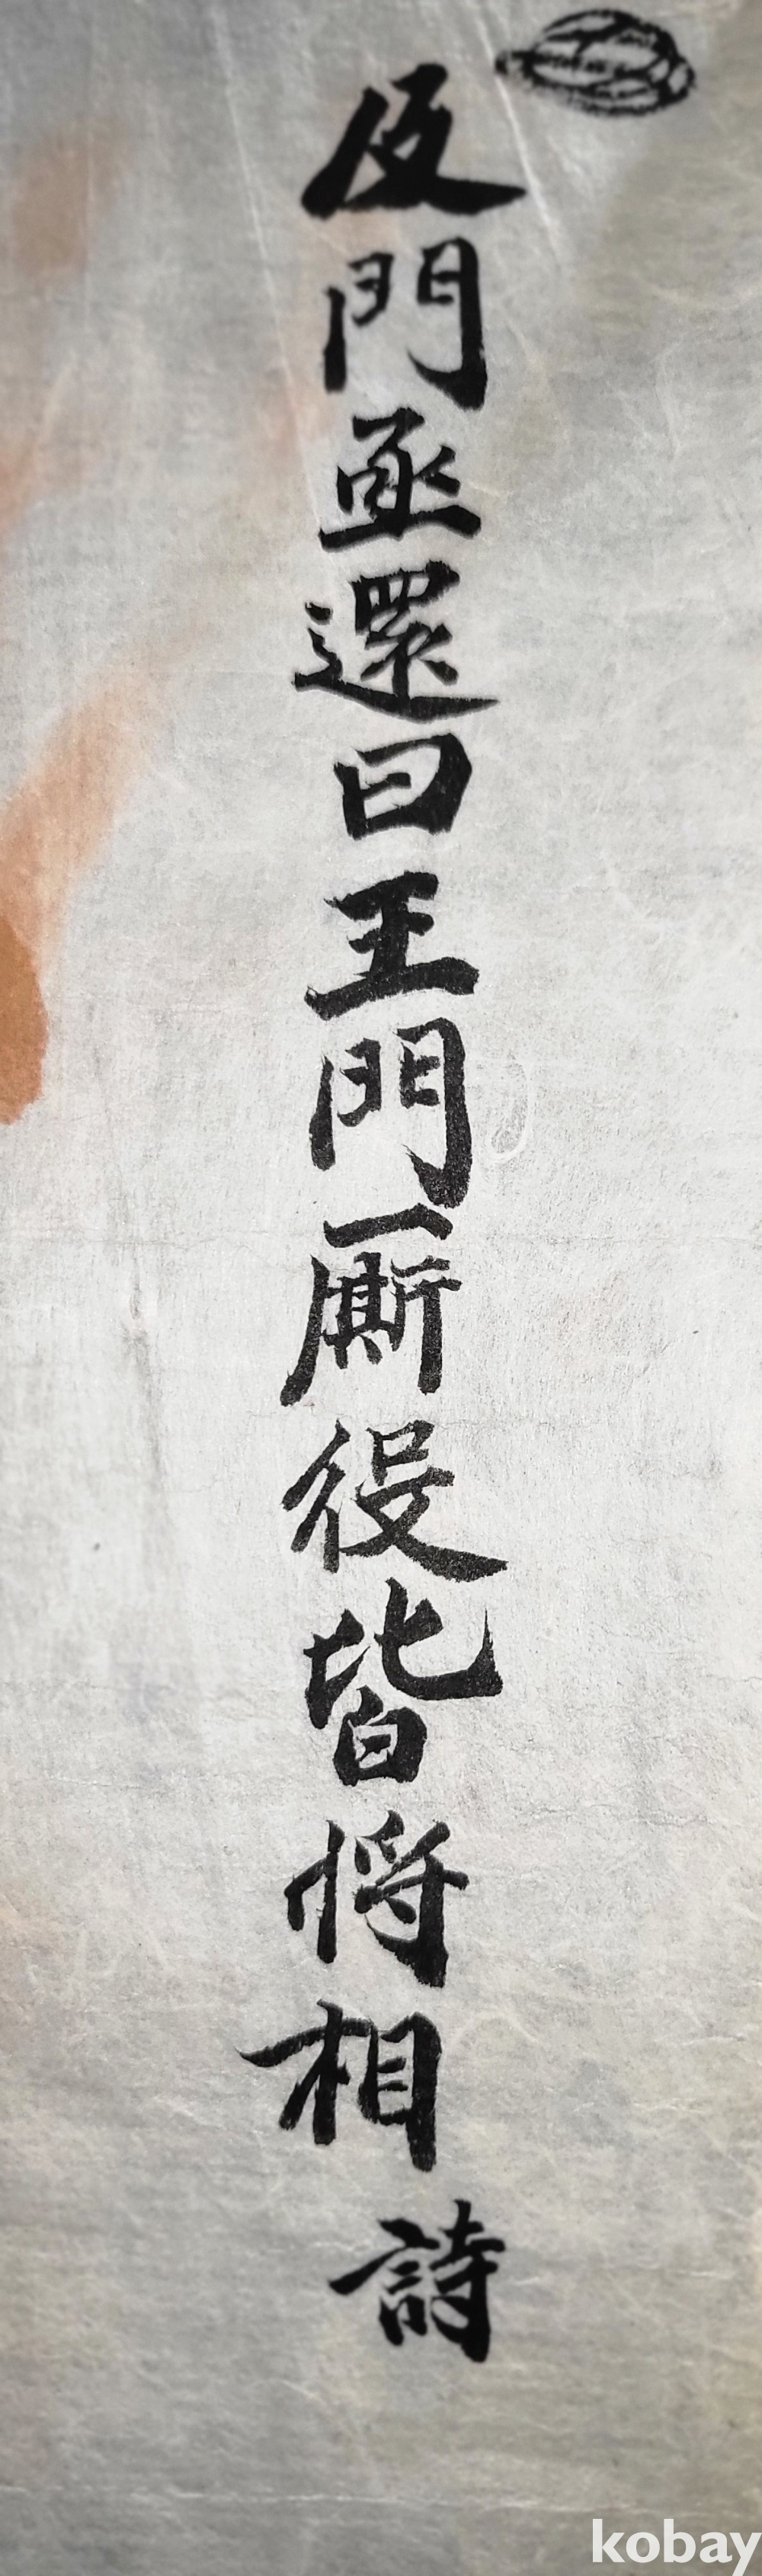 及門亟還曰王門厮役皆將相 詩
kobay